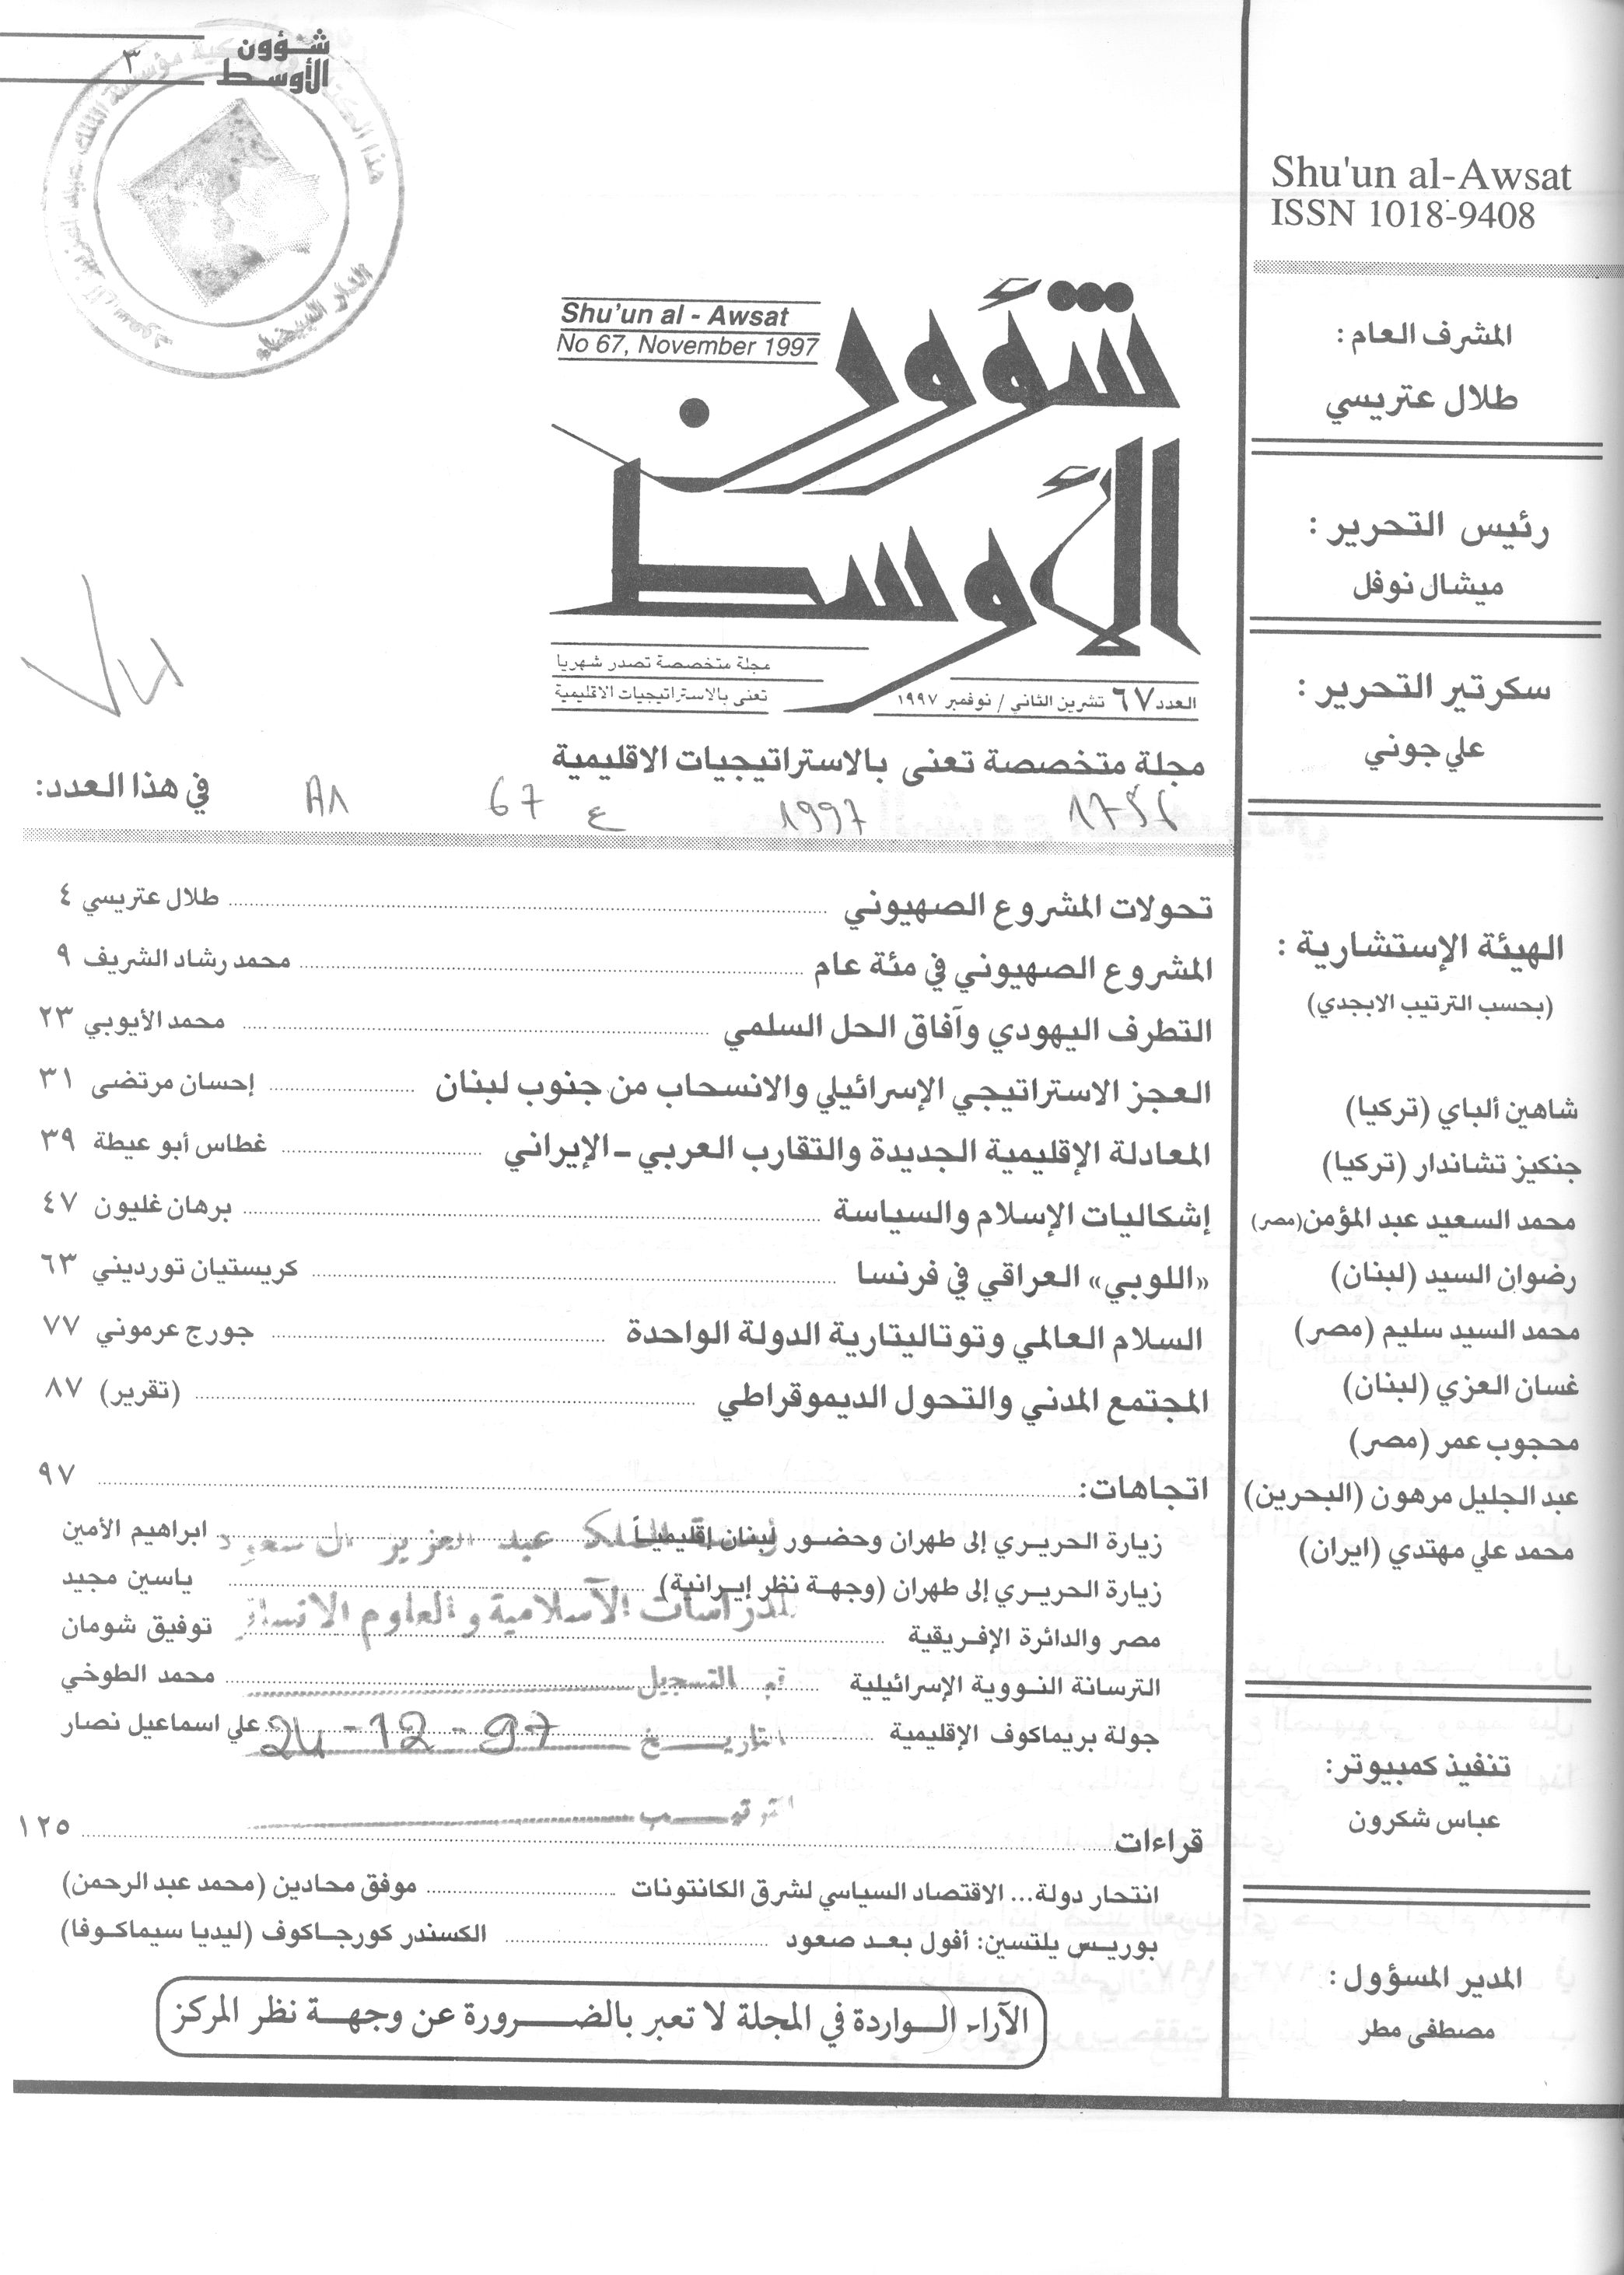 شؤون
الأوسط
٣
Shu'un al-Awsat
ISSN 1018-9408
المشرف العام :
طلال عتريسي
رئيس التحرير :
ميشال نوفل
سكرتير التحرير :
علي جوني
الهيئة الإستشارية :
(بحسب الترتيب الابجدي)
شاهين ألباي (تركيا)
جنكيز تشاندار (تركيا)
محمد السعيد عبد المؤمن (مصر)
رضوان السيد (لبنان)
محمد السيد سليم (مصر)
غسان العزي (لبنان)
محجوب عمر (مصر)
عبد الجليل مرهون (البحرين)
محمد علي مهتدي (ايران)
تنفيذ كمبيوتر:
عباس شكرون
المدير المسؤول :
مصطفى مطر
Shu'un al - Awsat
No 67, November 1997
شؤون
الأوسط
مجلة متخصصة تصدر شهريا
تعنى بالاستراتيجيات الاقليمية
العدد ٦٧ تشرين الثاني / نوفمبر ١٩٩٧
مجلة متخصصة تعنى بالاستراتيجيات الاقليمية
1997 ع 67
في هذا العدد:
تحولات المشروع الصهيوني ........ طلال عتريسي ٤
المشروع الصهيوني في مئة عام ........ محمد رشاد الشريف ٩
التطرف اليهودي وآفاق الحل السلمي ........ محمد الأيوبي ٢٣
العجز الاستراتيجي الإسرائيلي والانسحاب من جنوب لبنان ........ إحسان مرتضى ٣١
المعادلة الإقليمية الجديدة والتقارب العربي ـ الإيراني ........ غطاس أبو عيطة ٣٩
إشكاليات الإسلام والسياسة ........ برهان غليون ٤٧
«اللوبي» العراقي في فرنسا ........ كريستيان تورديني ٦٣
السلام العالمي وتوتاليتارية الدولة الواحدة ........ جورج عرموني ٧٧
المجتمع المدني والتحول الديموقراطي ........ (تقرير) ٨٧
اتجاهات: ........ ٩٧
زيارة الحريري إلى طهران وحضور لبنان إقليمياً ........ ابراهيم الأمين
زيارة الحريري إلى طهران (وجهة نظر إيرانية) ........ ياسين مجيد
مصر والدائرة الإفريقية ........ توفيق شومان
الترسانة النووية الإسرائيلية ........ محمد الطوخي
جولة بريماكوف الإقليمية ........ علي اسماعيل نصار
الملك عبد العزيز آل سعود
للدراسات الآسلامية والعلوم الانسانية
التسجيل
التاريخ 24-12-97
قراءات ........ ١٢٥
انتحار دولة... الاقتصاد السياسي لشرق الكانتونات ........ موفق محادين (محمد عبد الرحمن)
بوريس يلتسين: أفول بعد صعود ........ الكسندر كورجاكوف (ليديا سيماكوفا)
الآراء الواردة في المجلة لا تعبر بالضرورة عن وجهة نظر المركز